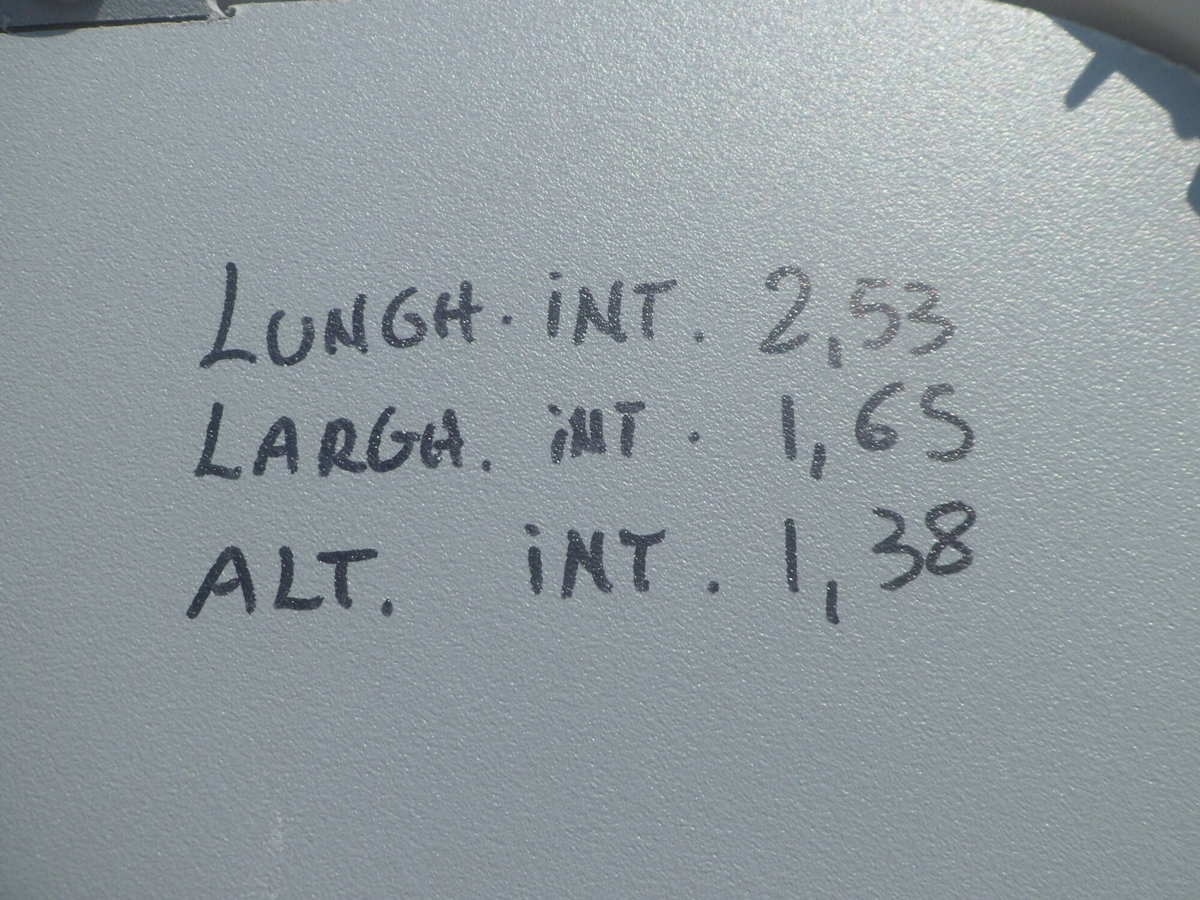 LUNGH. iNT. 2,53
LARGH. iNT. 1,65
ALT. iNT. 1,38